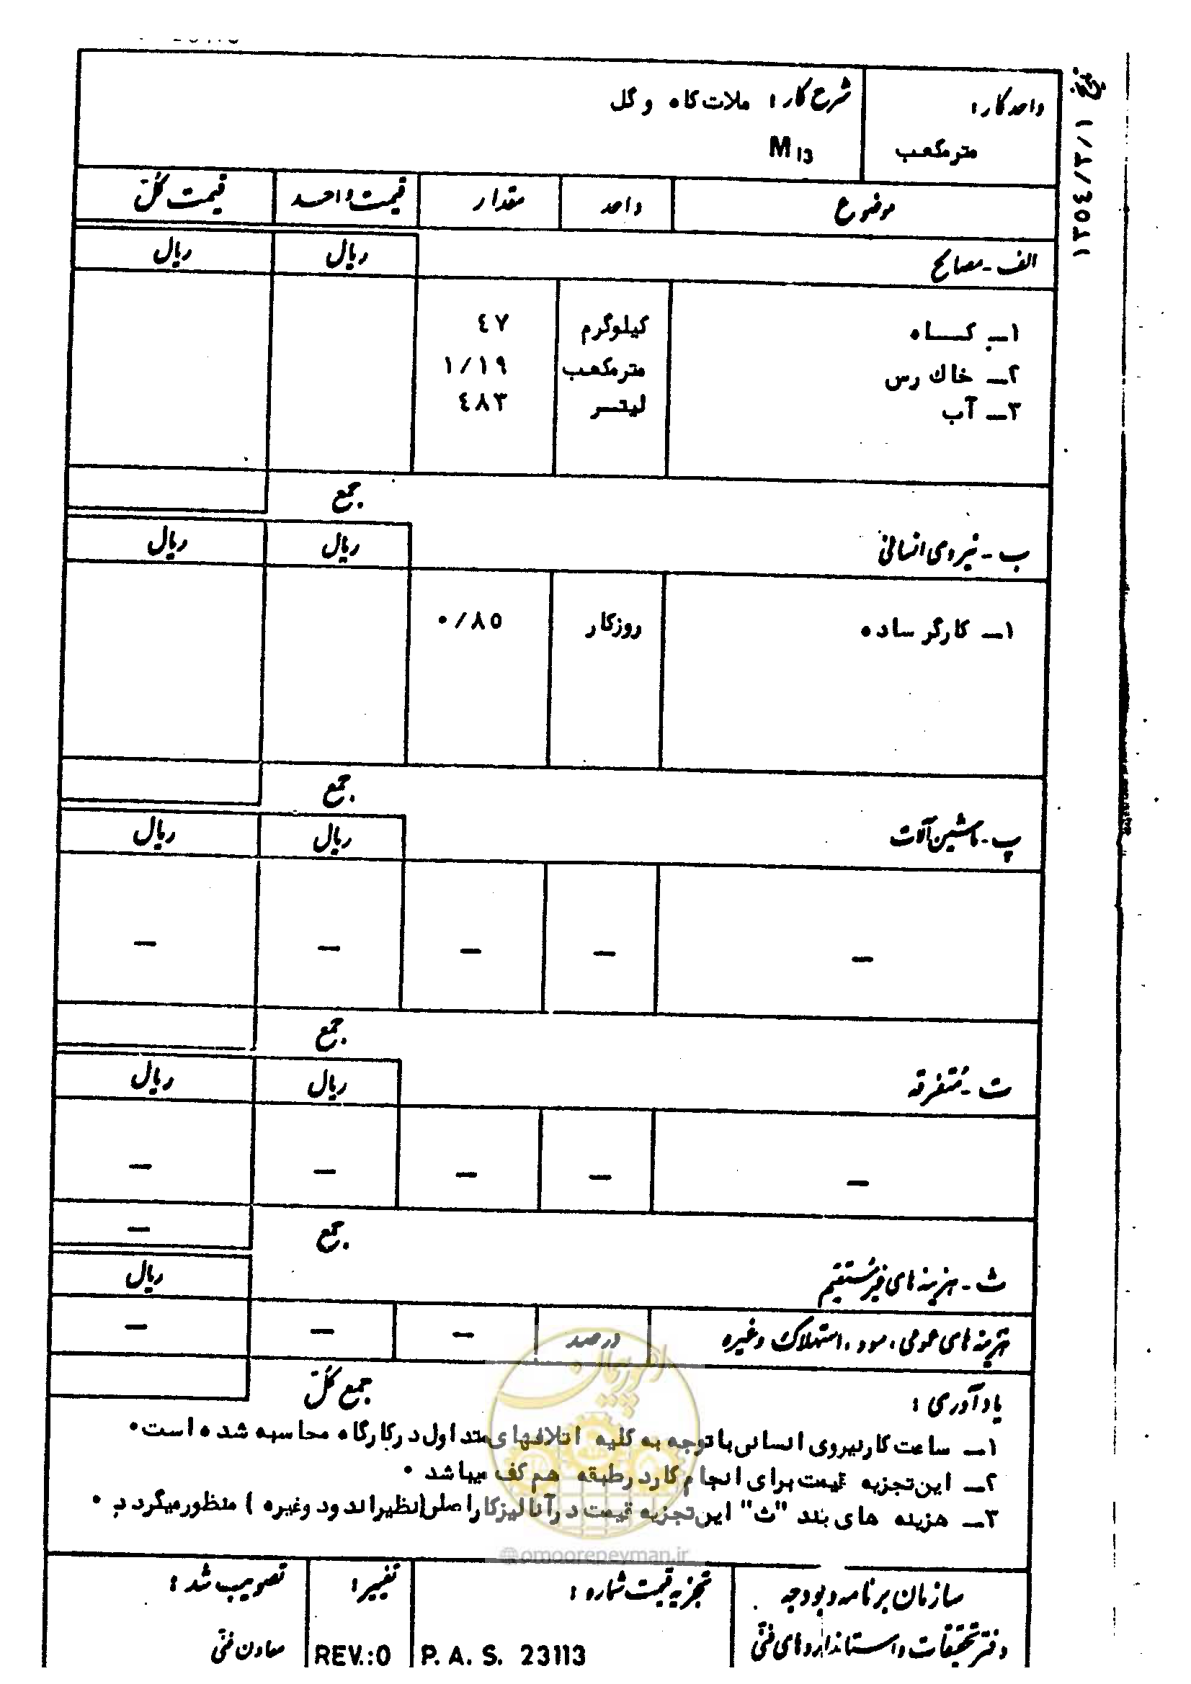 تاریخ ۱۳۵٤/۳/۱
واحد کار :
متر مکعب
شرح کار : ملات کاه و گل
M13
موضوع واحد مقدار قیمت واحد قیمت کل
الف - مصالح ریال ریال
۱ـ کـــاه کیلوگرم ٤۷
۲ـ خاك رس متر مکعب ۱/۱۹
۳ـ آب لیتـــر ٤۸۳
جمع
ب - نیروی انسانی ریال ریال
۱ـ کارگر ساده روزکار ۰/۸۵
جمع
پ - ماشین آلات ریال ریال
— — — — —
جمع
ت - متفرقه ریال ریال
— — — — —
جمع —
ث - هزینه های غیر مستقیم ریال
هزینه های عمومی ، سود ، استهلاک وغیره درصد — — —
جمع کل
یادآوری :
۱ـ ساعت کار نیروی انسانی با توجه به کلیه اتلافهای متداول در کارگاه محاسبه شده است۰
۲ـ این تجزیه قیمت برای انجام کار در طبقه هم کف میباشد ۰
۳ـ هزینه های بند "ث" این تجزیه قیمت در آنالیز کار اصلی (نظیر اندود وغیره ) منظور میگردد ۰
امور پیمان
@omoorepeyman.ir
سازمان برنامه و بودجه
دفتر تحقیقات و استانداردهای فنی
تجزیه قیمت شماره :
P. A. S. 23113
تغییر :
REV.:0
تصویب شد :
معاون فنی